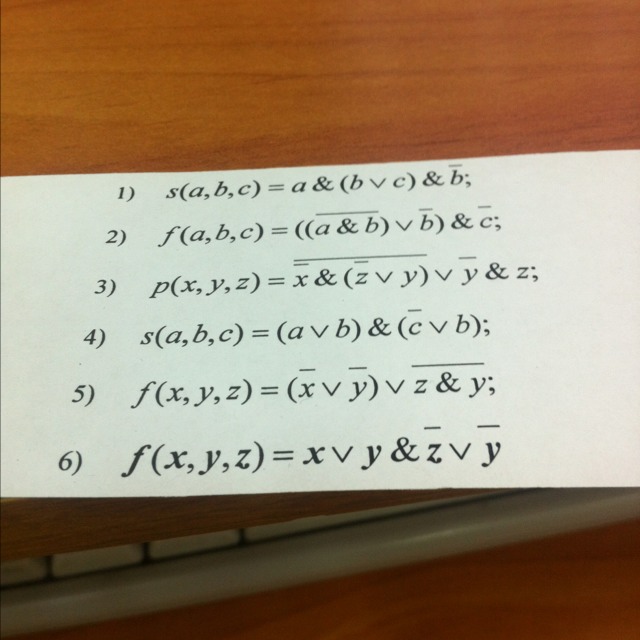 1) s(a,b,c) = a & (b ∨ c) & b̅;
2) f(a,b,c) = ((a̅ ̅&̅ ̅b̅) ∨ b̅) & c̅;
3) p(x,y,z) = x̿ ̅&̅ ̅(̅z̿ ̅∨̅ ̅y̅)̅ ∨ y̅ & z;
4) s(a,b,c) = (a ∨ b) & (c̅ ∨ b);
5) f(x,y,z) = (x̅ ∨ y̅) ∨ z̅ ̅&̅ ̅y̅;
6) f(x,y,z) = x ∨ y & z̅ ∨ y̅